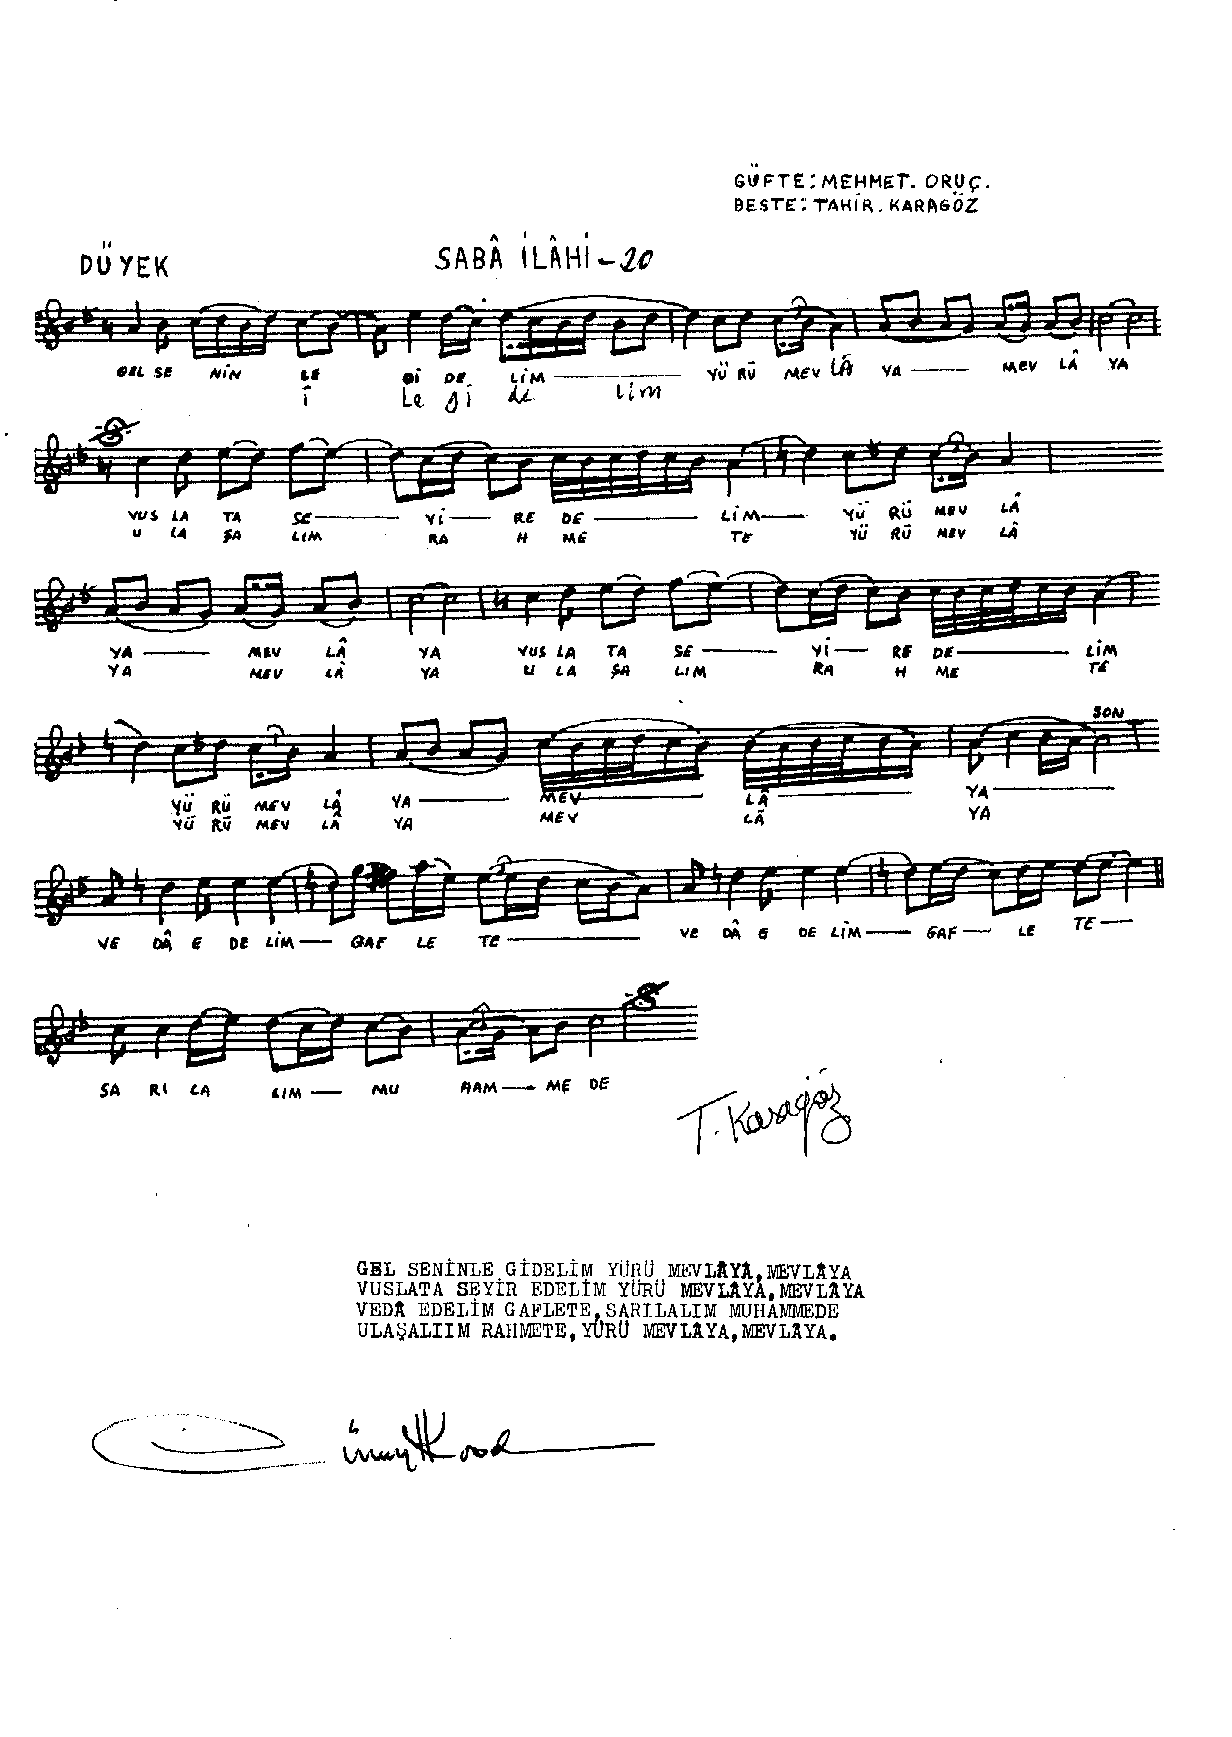 GÜFTE: MEHMET. ORUÇ.
BESTE: TAHİR. KARAGÖZ
DÜYEK SABÂ İLÂHİ - 20
GEL SE NİN LE Gİ DE LİM YÜ RÜ MEV LÂ YA MEV LÂ YA
İ Le gi de lim
VUS LA TA SE Yİ RE DE LİM YÜ RÜ MEV LÂ
U LA ŞA LIM RA H ME TE YÜ RÜ MEV LÂ
YA MEV LÂ YA VUS LA TA SE Yİ RE DE LİM
YA MEV LÂ YA U LA ŞA LIM RA H ME TE
SON
YÜ RÜ MEV LÂ YA MEV LÂ YA
YÜ RÜ MEV LÂ YA MEV LÂ YA
VE DÂ E DE LİM GAF LE TE VE DÂ E DE LİM GAF LE TE
SA RI LA LIM MU HAM ME DE
T. Karagöz
GEL SENİNLE GİDELİM YÜRÜ MEVLÂYA, MEVLÂYA
VUSLATA SEYİR EDELİM YÜRÜ MEVLÂYA, MEVLÂYA
VEDÂ EDELİM GAFLETE, SARILALIM MUHAMMEDE
ULAŞALIIM RAHMETE, YÜRÜ MEVLÂYA, MEVLÂYA.